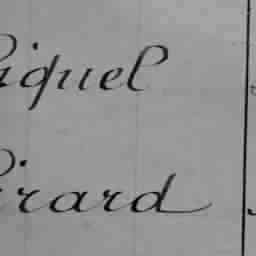 iquel
irard